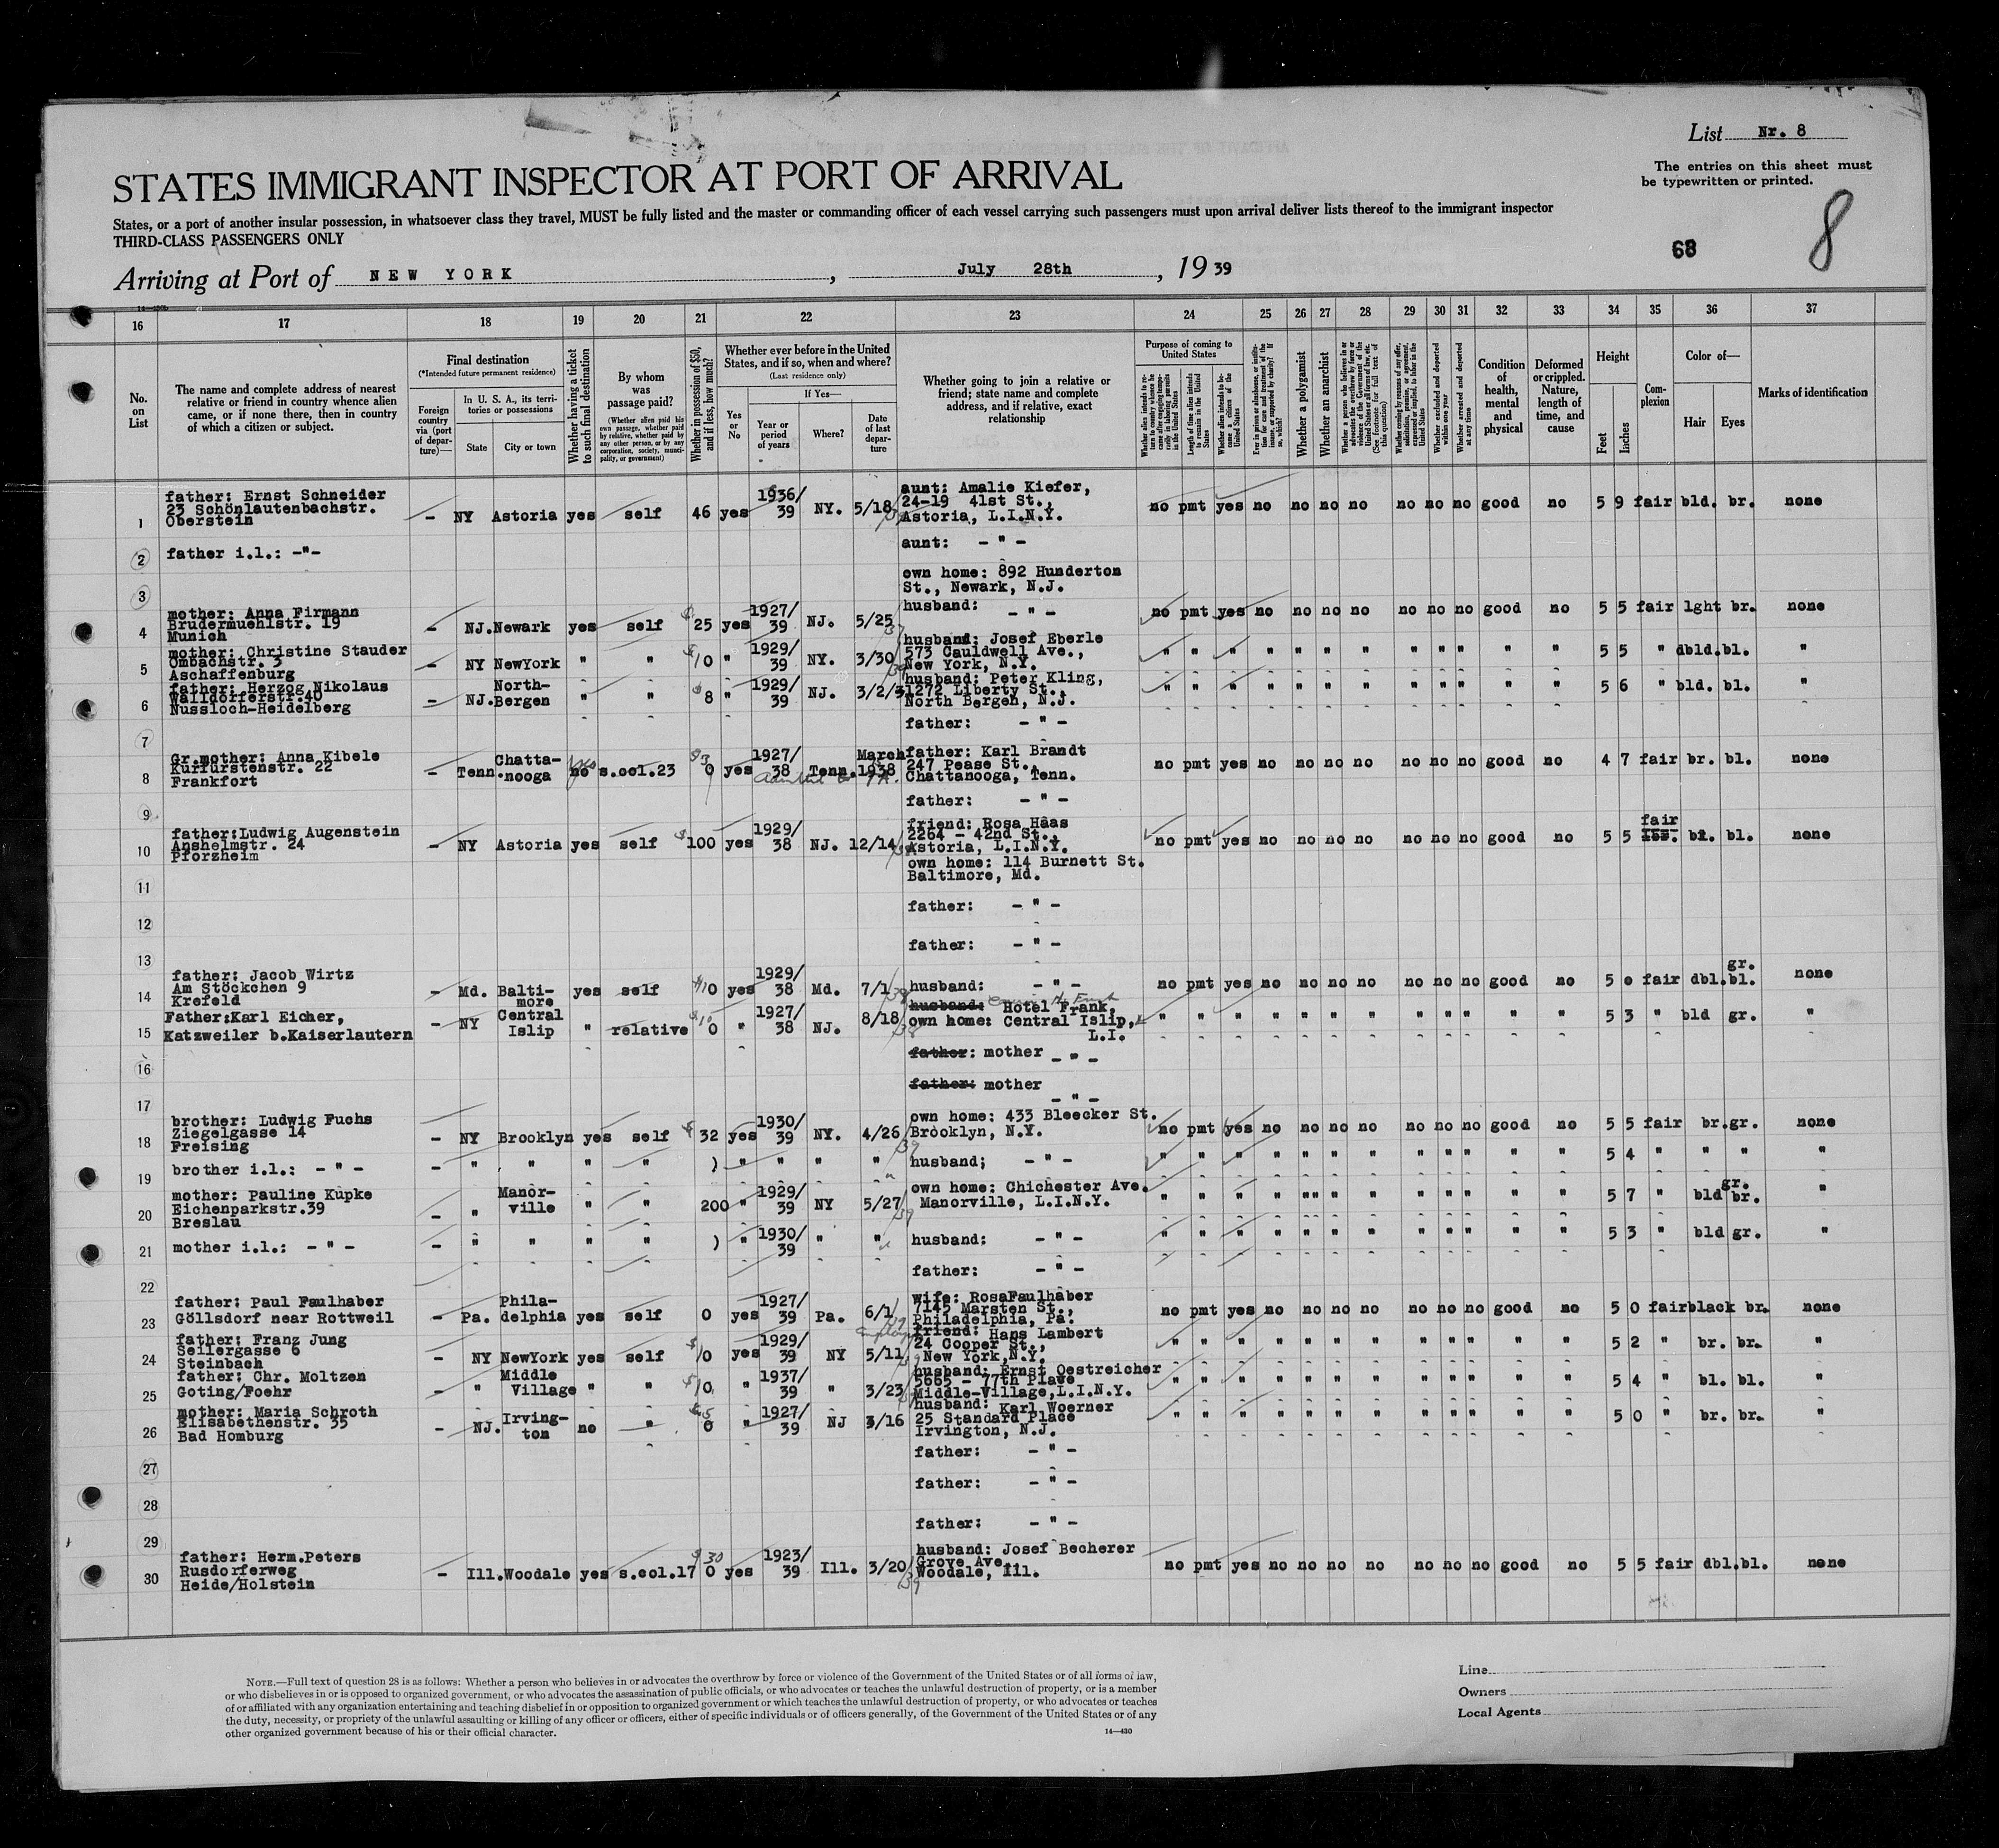 List Nr. 8
The entries on this sheet must
be typewritten or printed.
8
68
STATES IMMIGRANT INSPECTOR AT PORT OF ARRIVAL
States, or a port of another insular possession, in whatsoever class they travel, MUST be fully listed and the master or commanding officer of each vessel carrying such passengers must upon arrival deliver lists thereof to the immigrant inspector
THIRD-CLASS PASSENGERS ONLY
Arriving at Port of NEW YORK, July 28th, 19 39
16 17 18 19 20 21 22 23 24 25 26 27 28 29 30 31 32 33 34 35 36 37
No. on List
The name and complete address of nearest relative or friend in country whence alien came, or if none there, then in country of which a citizen or subject.
Final destination
(*Intended future permanent residence)
Foreign country via (port of departure)—
In U. S. A., its territories or possessions
State
City or town
Whether having a ticket to such final destination
By whom was passage paid?
(Whether alien paid his own passage, whether paid by relative, whether paid by any other person, or by any corporation, society, municipality, or government)
Whether in possession of $50, and if less, how much?
Whether ever before in the United States, and if so, when and where?
(Last residence only)
Yes or No
If Yes—
Year or period of years
Where?
Date of last departure
Whether going to join a relative or friend; state name and complete address, and if relative, exact relationship
Purpose of coming to United States
Whether a polygamist
Whether an anarchist
Condition of health, mental and physical
Deformed or crippled. Nature, length of time, and cause
Height
Feet
Inches
Complexion
Color of—
Hair
Eyes
Marks of identification
1 father: Ernst Schneider
23 Schönlautenbachstr.
Oberstein
- NY Astoria yes self 46 yes 1936/39 NY. 5/18/39
aunt: Amalie Kiefer,
24-19 41st St.,
Astoria, L.I.N.Y.
no pmt yes no no no no no no no good no 5 9 fair bld. br. none
2 father i.l.: -"-
aunt: - " -
3 own home: 892 Hunderton
St., Newark, N.J.
4 mother: Anna Firmann
Brudermuehlstr. 19
Munich
- NJ. Newark yes self 25 yes 1927/39 NJ. 5/25
husband: - " -
no pmt yes no no no no no no no good no 5 5 fair lght br. none
5 mother: Christine Stauder
Ombachstr. 3
Aschaffenburg
- NY NewYork " " $10 " 1929/39 NY. 3/30
husband: Josef Eberle
573 Cauldwell Ave.,
New York, N.Y.
" " " " " " " " " " " " 5 5 " dbld. bl. "
6 father: Herzog Nikolaus
Walldorferstr.40
Nussloch-Heidelberg
- NJ. North-Bergen " " 8 " 1929/39 NJ. 3/2/3
husband: Peter Kling,
1272 Liberty St.,
North Bergen, N.J.
" " " " " " " " " " " " 5 6 " bld. bl. "
7 father: - " -
8 Gr.mother: Anna Kibele
Kurfürstenstr. 22
Frankfort
- Tenn. Chatta-nooga no yes s.col.23 0 yes 1927/38 Tenn. March 1938
father: Karl Brandt
247 Pease St.,
Chattanooga, Tenn.
no pmt yes no no no no no no no good no 4 7 fair br. bl. none
9 father: - " -
10 father:Ludwig Augenstein
Anshelmstr. 24
Pforzheim
- NY Astoria yes self $100 yes 1929/38 NJ. 12/14
friend: Rosa Haas
2264 - 42nd St.,
Astoria, L.I.N.Y.
no pmt yes no no no no no no no good no 5 5 fair bl. bl. none
11 own home: 114 Burnett St.
Baltimore, Md.
12 father: - " -
13 father: - " -
14 father: Jacob Wirtz
Am Stöckchen 9
Krefeld
- Md. Balti-more yes self $10 yes 1929/38 Md. 7/1
husband: - " -
no pmt yes no no no no no no no good no 5 0 fair dbl. gr. bl. none
15 Father:Karl Eicher,
Katzweiler b.Kaiserlautern
- NY Central Islip " relative 0 " 1927/38 NJ. 8/18
husband: Hotel Frank,
own home: Central Islip,
L.I.
" " " " " " " " " " " " 5 3 " bld gr. "
16 father: mother - " -
17 father: mother - " -
18 brother: Ludwig Fuchs
Ziegelgasse 14
Freising
- NY Brooklyn yes self $32 yes 1930/39 NY. 4/26/39
own home: 433 Bleecker St.
Brooklyn, N.Y.
no pmt yes no no no no no no no good no 5 5 fair br. gr. none
19 brother i.l.: - " -
- " " " " ) " " " "
husband; - " -
" " " " " " " " " " " " 5 4 " " " "
20 mother: Pauline Kupke
Eichenparkstr.39
Breslau
- " Manor-ville " " 200 " 1929/39 NY 5/27/39
own home: Chichester Ave.
Manorville, L.I.N.Y.
" " " " " " " " " " " " 5 7 " bld gr. br. "
21 mother i.l.: - " -
- " " " " ) " 1930/39 " "
husband: - " -
" " " " " " " " " " " " 5 3 " bld gr. "
22 father: - " -
23 father: Paul Faulhaber
Göllsdorf near Rottweil
- Pa. Phila-delphia yes self 0 yes 1927/39 Pa. 6/1
wife: RosaFaulhaber
7145 Marsten St.,
Philadelphia, Pa.
no pmt yes no no no no no no no good no 5 0 fair black br. none
24 father: Franz Jung
Seilergasse 6
Steinbach
- NY NewYork yes self $10 yes 1929/39 NY 5/11
friend: Hans Lambert
24 Cooper St.,
New York,N.Y.
" " " " " " " " " " " " 5 2 " br. br. "
25 father: Chr. Moltzen
Goting/Foehr
- " Middle Village " " $10 " 1937/39 " 3/23
husband: Ernst Oestreicher
5665 - 77th Place
Middle-Village,L.I.N.Y.
" " " " " " " " " " " " 5 4 " bl. bl. "
26 mother: Maria Schroth
Elisabethenstr. 35
Bad Homburg
- NJ. Irving-ton no " 0 " 1927/39 NJ 3/16
husband: Karl Woerner
25 Standard Place
Irvington, N.J.
" " " " " " " " " " " " 5 0 " br. br. "
27 father: - " -
28 father: - " -
29 father: - " -
30 father: Herm.Peters
Rusdorferweg
Heide/Holstein
- Ill. Woodale yes s.col.17 $30 0 yes 1923/39 Ill. 3/20/39
husband: Josef Becherer
Grove Ave.
Woodale, Ill.
no pmt yes no no no no no no no good no 5 5 fair dbl. bl. none
NOTE.—Full text of question 28 is as follows: Whether a person who believes in or advocates the overthrow by force or violence of the Government of the United States or of all forms of law,
or who disbelieves in or is opposed to organized government, or who advocates the assassination of public officials, or who advocates or teaches the unlawful destruction of property, or is a member
of or affiliated with any organization entertaining and teaching disbelief in or opposition to organized government or which teaches the unlawful destruction of property, or who advocates or teaches
the duty, necessity, or propriety of the unlawful assaulting or killing of any officer or officers, either of specific individuals or of officers generally, of the Government of the United States or of any
other organized government because of his or their official character.
14—430
Line
Owners
Local Agents